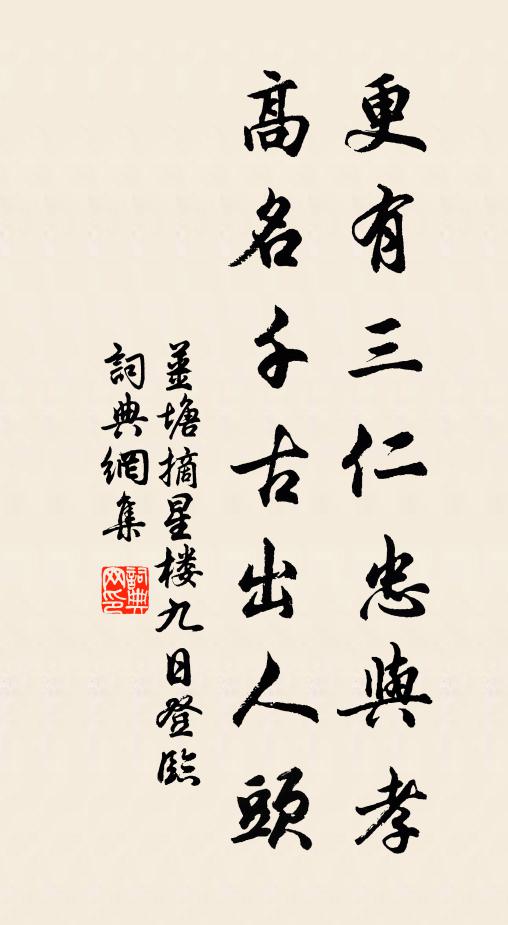 更有三仁忠與孝
高名千古出人頭
薑塘摘星楼九日登臨
詞典網集
詞典
网印